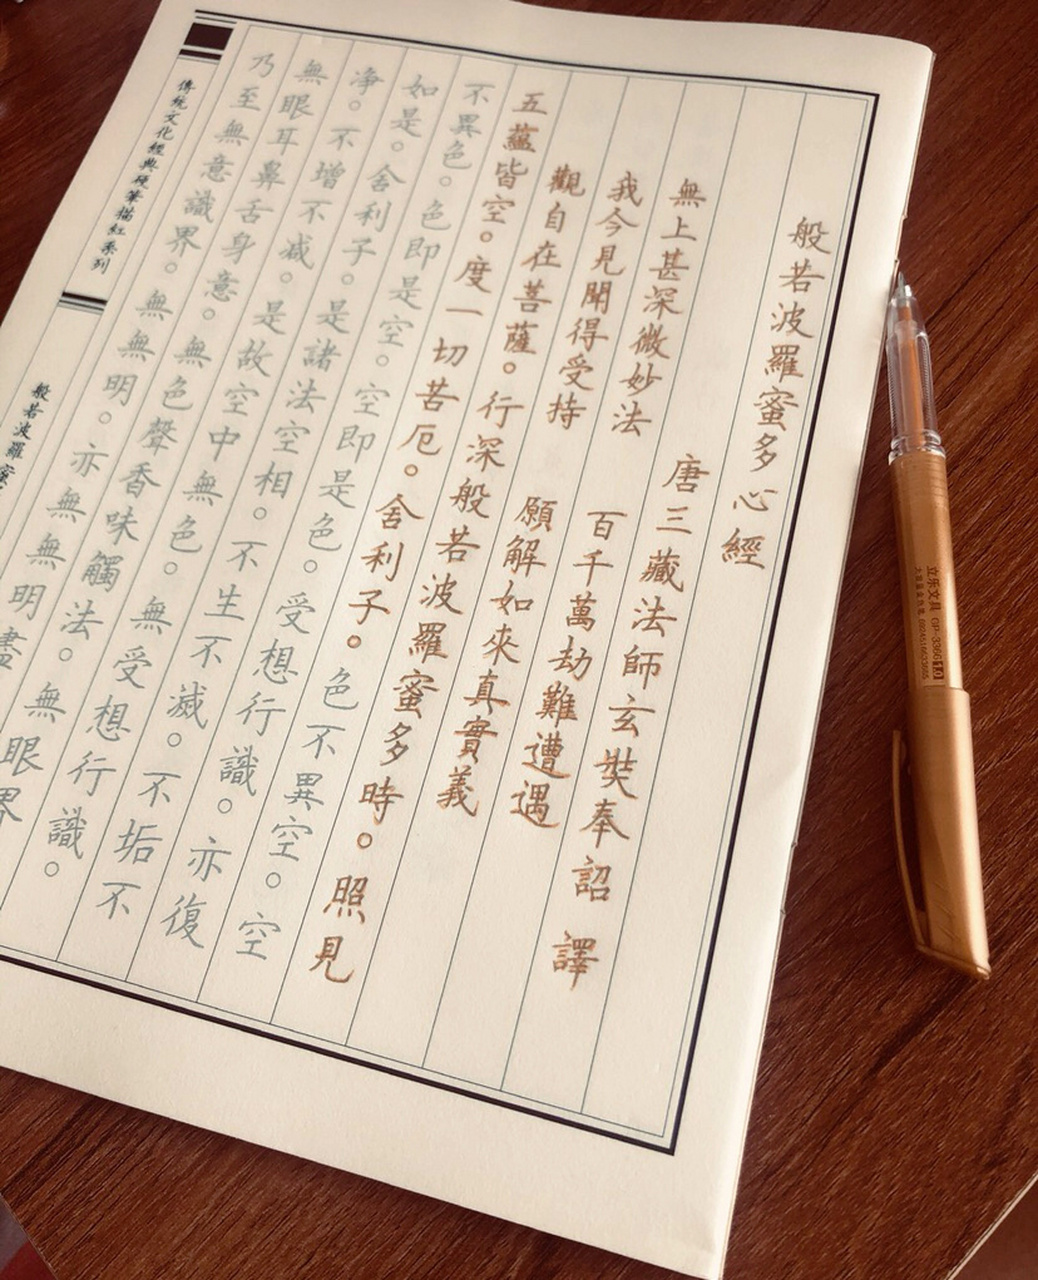 般若波羅蜜多心經
唐三藏法師玄奘奉詔 譯
無上甚深微妙法 百千萬劫難遭遇
我今見聞得受持 願解如來真實義
觀自在菩薩。行深般若波羅蜜多時。照見
五蘊皆空。度一切苦厄。舍利子。色不異空。空
不異色。色即是空。空即是色。受想行識。亦復
如是。舍利子。是諸法空相。不生不滅。不垢不
净。不增不减。是故空中無色。無受想行識。
無眼耳鼻舌身意。無色聲香味觸法。無眼界
乃至無意識界。無無明。亦無無明盡
傳統文化經典硬筆描紅系列
般若波羅蜜
立乐文具 GP-3366 1.0